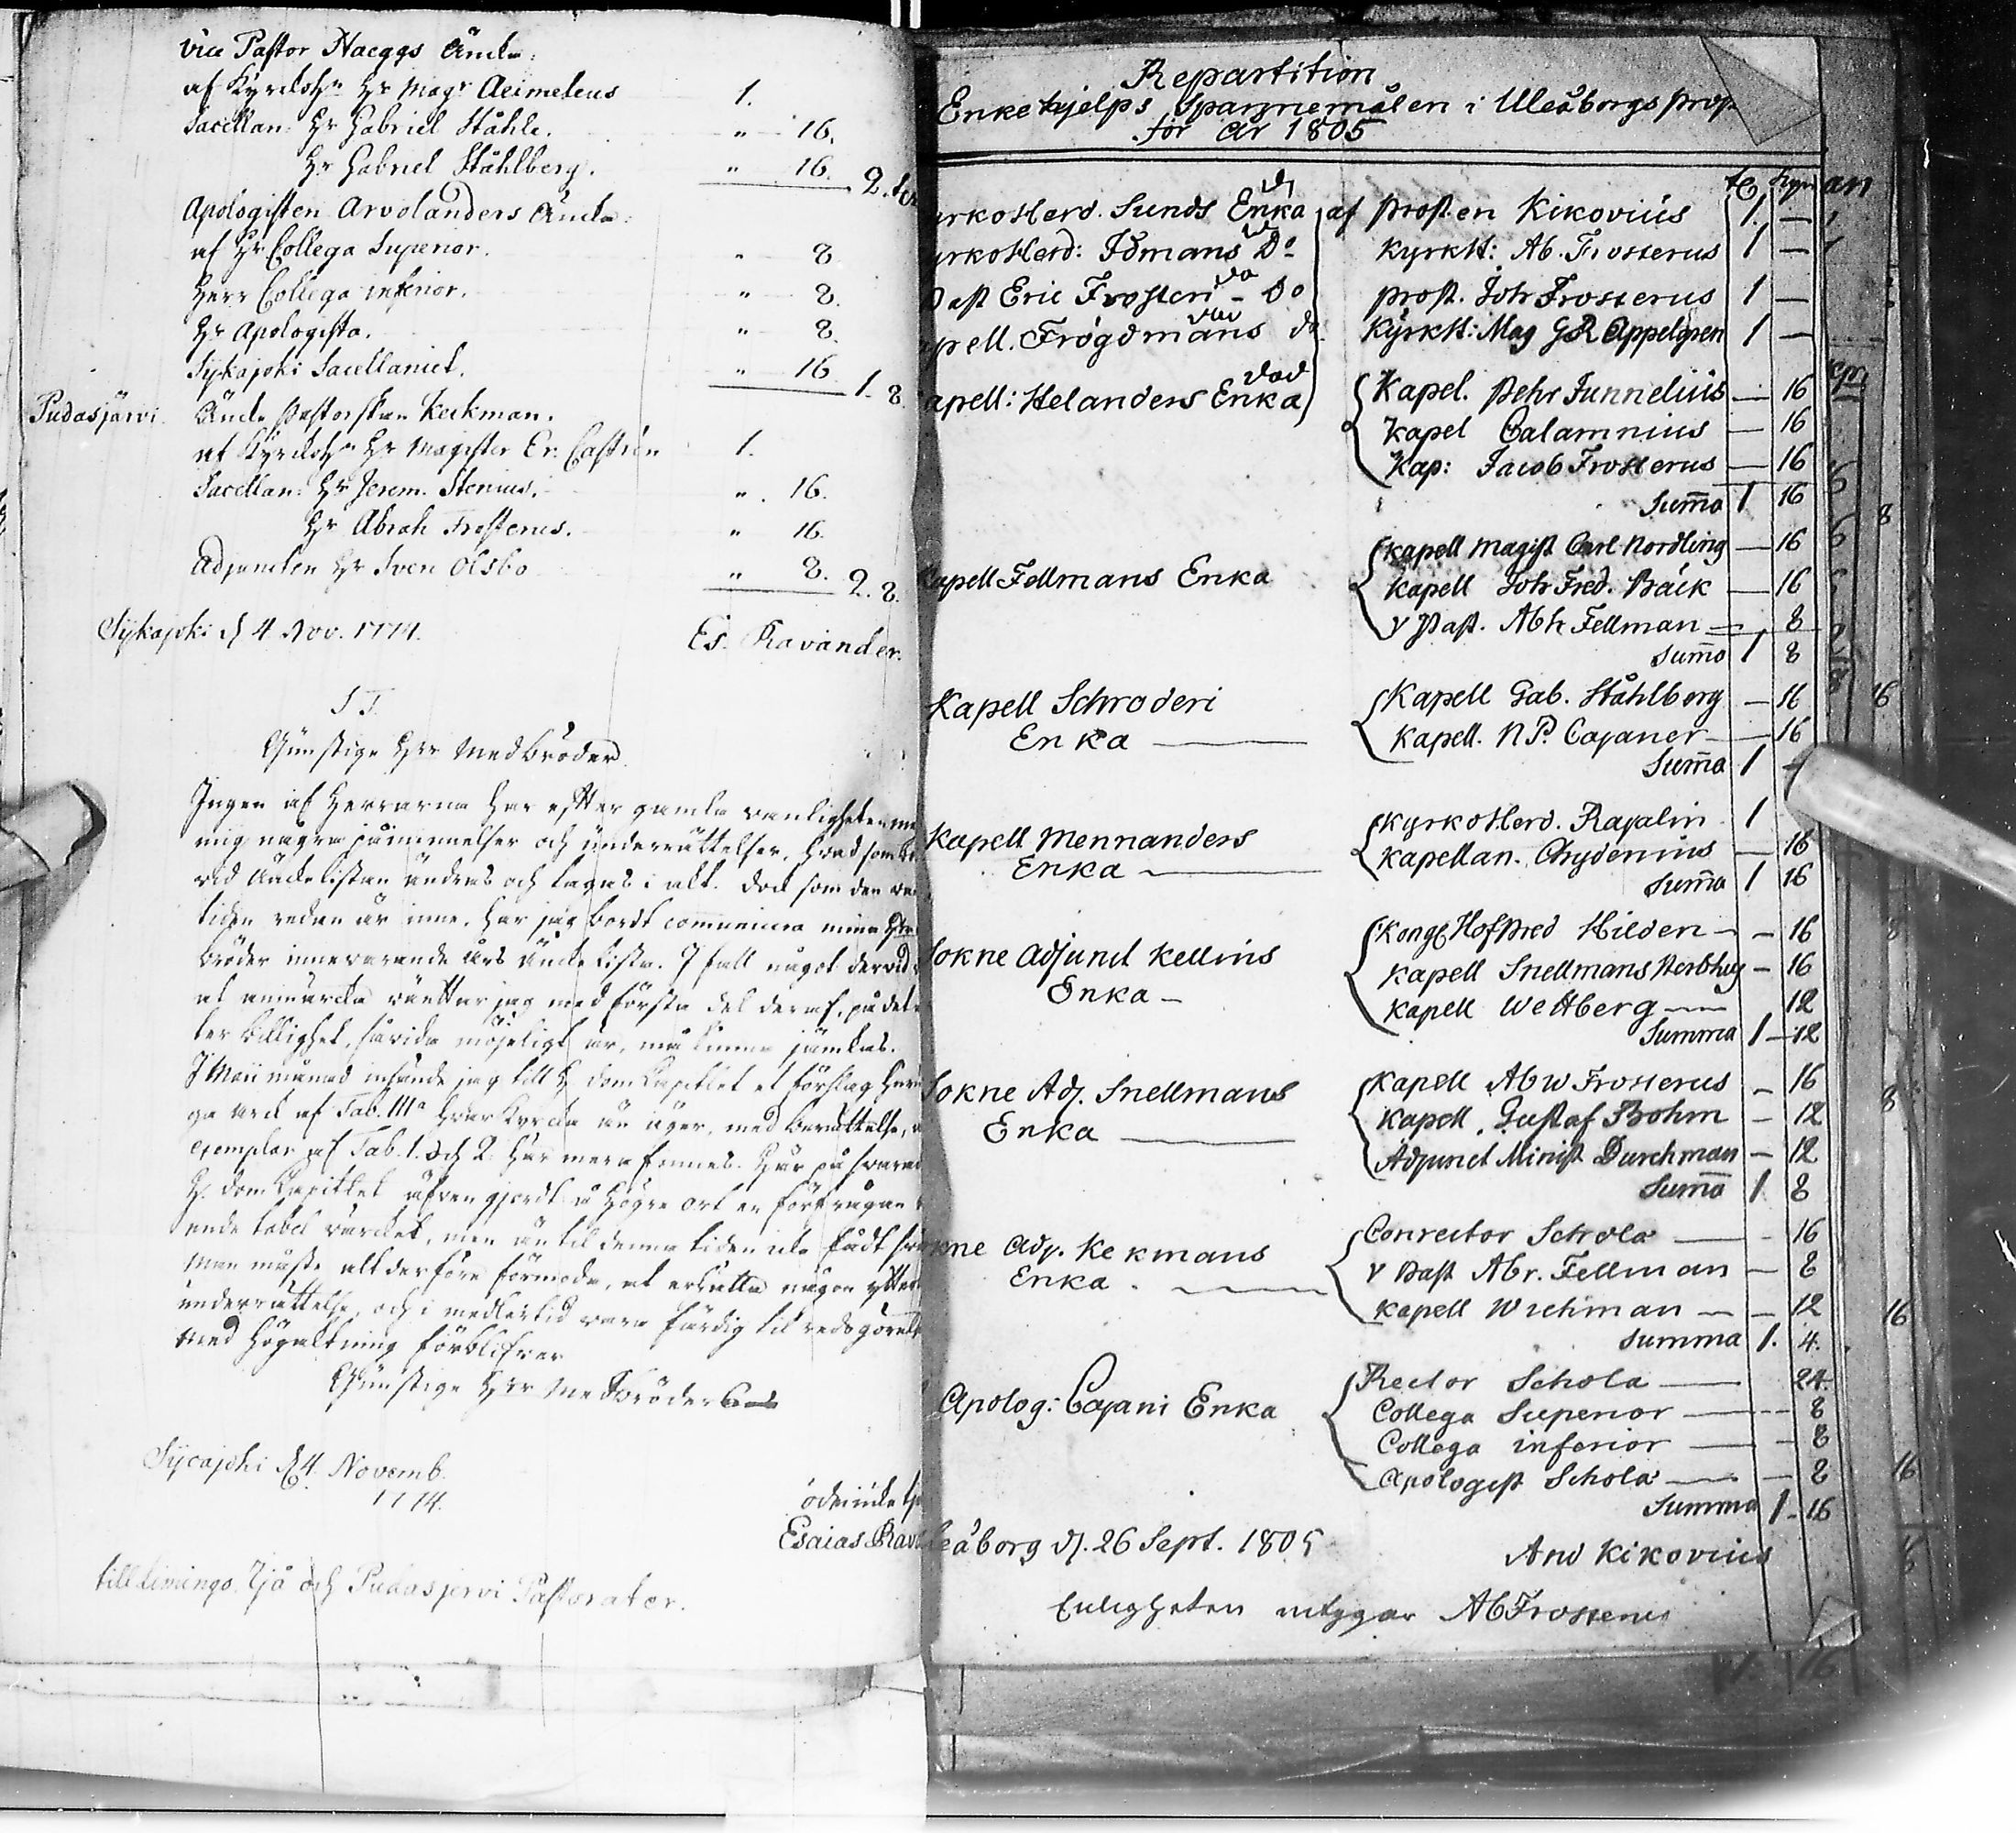 Vice Pastor Haeggs Ancka:
af Kyrckoh: Hr Magr Aeimeleus 1.
Sacellan: Hr Gabriel Ståhle. " 16.
Hr Gabriel Ståhlberg. " 16. 2.
Apologisten Arvolanders Ancka:
af Hr Collega Superior. " 8
Herr Collega inferior. " 8.
Hr Apologista. " 8.
Sijkajoki Sacellaniet. " 16. 1. 8.
Pudasjärvi Ancka Pastorskan Keckman.
af Kyrckoh Hr Magister Er: Castrén 1.
Sacellan: Hr Jerem. Stenius. " 16.
Hr Abrah Frosterus. " 16.
Adjuncten Hr Sven Olsbo " 8. 2. 8.
Sijkajoki d 4 Nov. 1774. Es. Ravander.
S T.
Gunstige Hrr Medbröder.
Ingen af Herrarna har efter gamla vanligheten
mig några påminnelser och underrättelser, hvad som
vid Anckelistan ändras och lagas i akt. Dock som den
tiden redan är inne, har jag bordt communicera mina Hrr
bröder innevarande års Ancke Lista. I fall något dervid
at anmärcka väntar jag med första del deraf, på det
ter billighet, såvida möjeligt är, må kunna jämkas.
I Maii månad insände jag till H. Dom Capitlet et förslag huru
ga ark af Tab. IIIa hvar Kyrcka än äger, med berättelse,
exemplar af Tab. 1. och 2. här mera finnes. Här på svarade
H. Dom Capitlet äfven gjordt å högre ort en förfrågan
ende tabel värcket, men än til denna tiden icke fådt
Man måste alt derföre förmoda, at erhålla någon ytter
underrättelse, och i medlertid vara färdig til redogörelse
Med högaktning förblifver
Gunstige Hrr Medbröders
Sijcajoki d 4. Novemb.
1774.
ödmjuke
Esaias Rav
till Limingo, Ijå och Pudasjervi Pastorater.
Repartition
Enkehjelps Spannemålen i Uleåborgs prop
för År 1805
yrkoHerd. Sunds Enka af Prosten Kikovius 1. —
yrkoHerd: Idmans Do KyrkH: Ab. Frosterus 1 —
Past Eric Frosteri - Do Prost. Joh Frosterus 1 —
apell. Frögdmans do KyrkH: Mag GR Appelgren 1 —
apell: Helanders Enka Kapel. Pehr Junnelius — 16
Kapel Calamnius — 16
Kap: Jacob Frosterus — 16
Summa 1 16
Kapell Magist Carl Nordling — 16
Kapell Fellmans Enka Kapell Joh Fred. Bäck — 16
V Past. Abh Fellman — 8
Summa 1 8
Kapell Schroderi Kapell Gab. Ståhlberg — 16
Enka — Kapell. N P. Cajaner — 16
Summa 1 -
Kapell Mennanders KyrkoHerd. Rajalin 1
Enka — Kapellan. Chydenius — 16
Summa 1 16
Kongl HofPred Hilden — 16
Sokne Adjunct Kellins Kapell Snellmans Sterbhus — 16
Enka — Kapell Westberg — 12
Summa 1 — 12
Sokne Adj. Snellmans Kapell Ab W Frosterus — 16
Enka — Kapell. Gustaf Bohm — 12
Adjunct Minist Durchman — 12
Summa 1. 8
Conrector Schola — 16
kne Adj. Kekmans V Past Abr. Fellman — 8
Enka. — Kapell Wichman — 12
Summa 1. 4.
Rector Schola — 24.
Apolog: Cajani Enka Collega Superior — 8
Collega inferior — 8
Apologist Schola — 8
Summa 1 - 16
leåborg d. 26 Sept. 1805 And Kikovius
Enligheten intygar Ab Frosterus